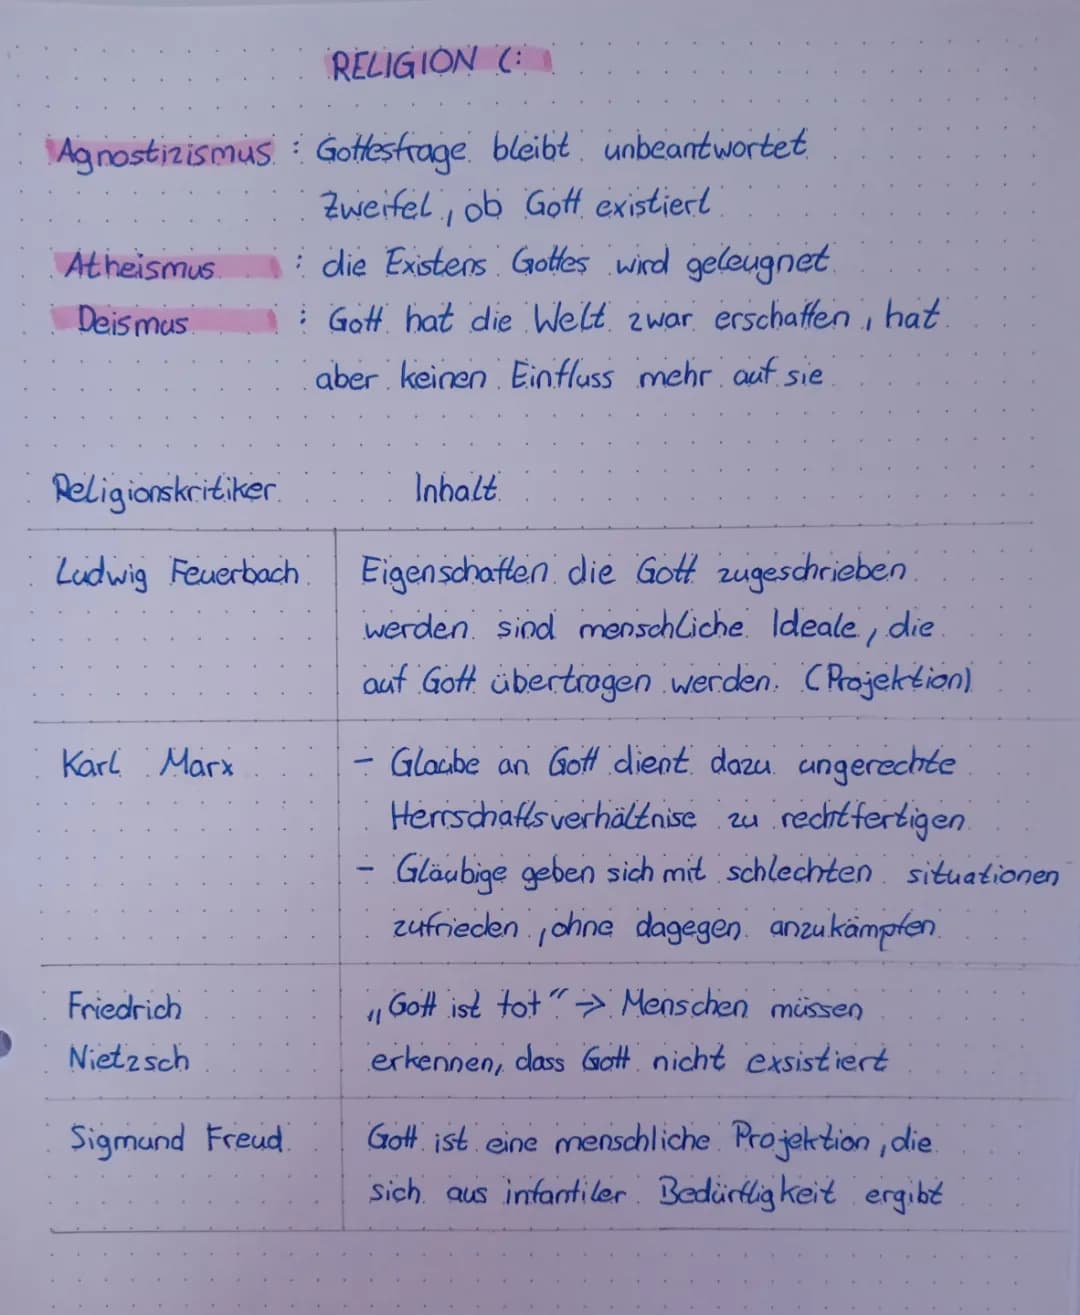 RELIGION (:
Agnostizismus : Gottesfrage bleibt unbeantwortet
Zweifel, ob Gott existiert
Atheismus : die Existens Gottes wird geleugnet
Deismus : Gott hat die Welt zwar erschaffen, hat
aber keinen Einfluss mehr auf sie
Religionskritiker Inhalt
Ludwig Feuerbach Eigenschaften die Gott zugeschrieben
werden sind menschliche Ideale, die
auf Gott übertragen werden. (Projektion)
Karl Marx - Glaube an Gott dient dazu ungerechte
Herrschaftsverhältnise zu rechtfertigen
- Gläubige geben sich mit schlechten situationen
zufrieden, ohne dagegen anzukämpfen
Friedrich „Gott ist tot“ → Menschen müssen
Nietzsch erkennen, dass Gott nicht exsistiert
Sigmund Freud Gott ist eine menschliche Projektion, die
sich aus infantiler Bedürftigkeit ergibt